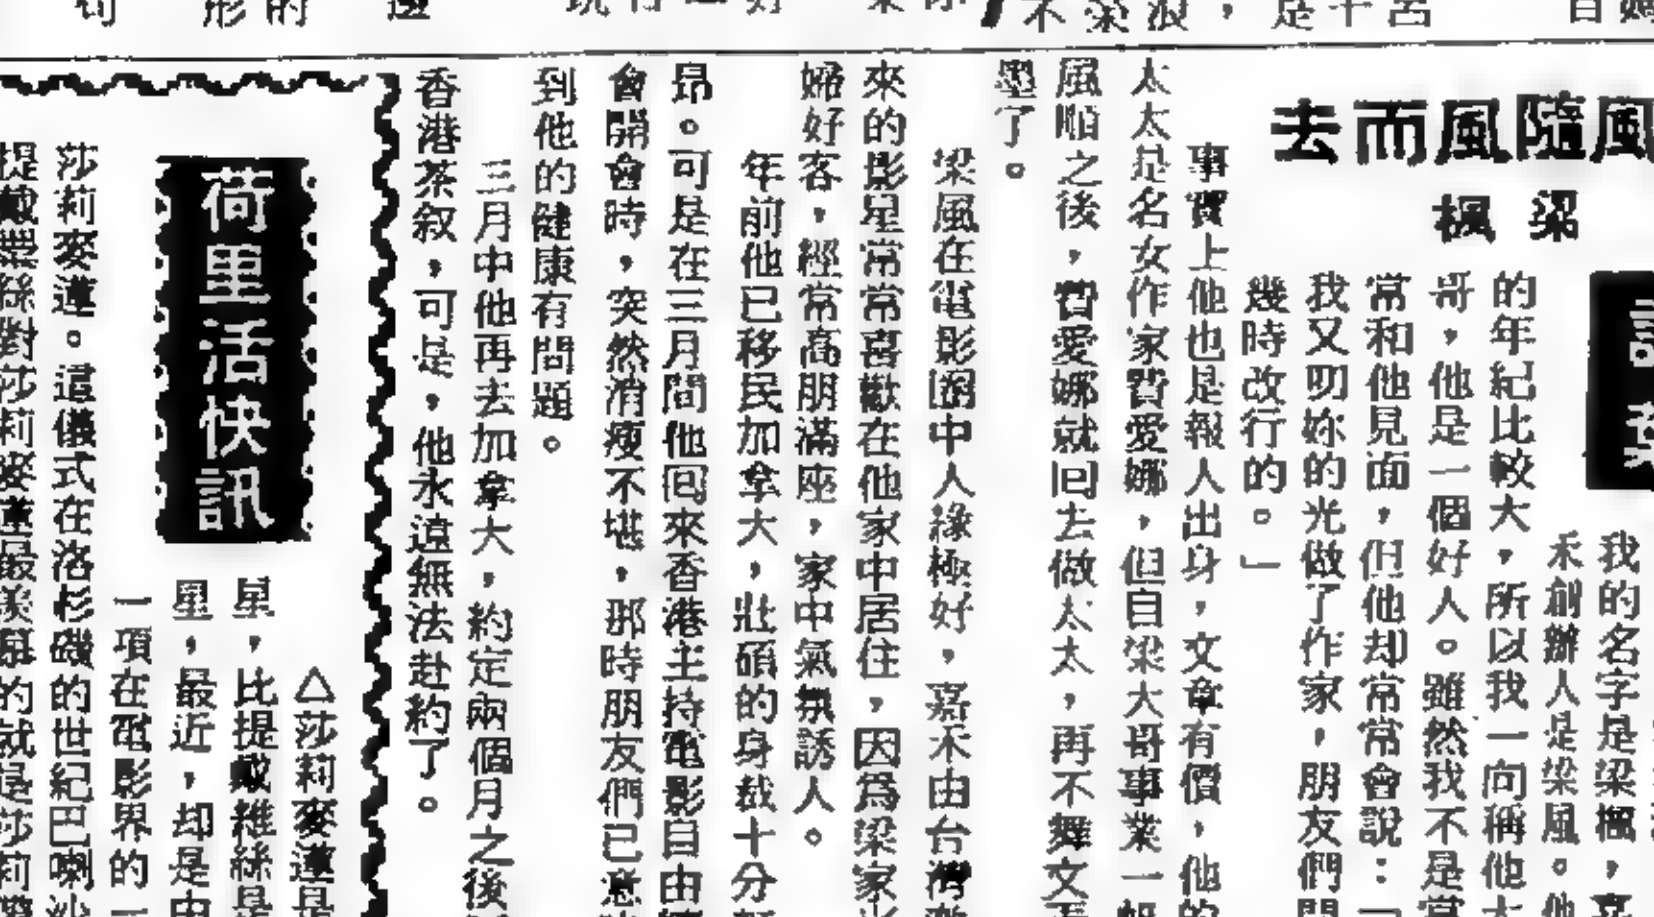 風隨風而去
梁楓
我的名字是梁楓，嘉
禾創辦人是梁風。他
的年紀比較大，所以我一向稱他大
哥，他是一個好人。雖然我不是常
常和他見面，但他却常常會說：「
我又叨妳的光做了作家，朋友們問
幾時改行的。」
事實上他也是報人出身，文章有價，他的
太太是名女作家費愛娜，但自梁大哥事業一帆
風順之後，費愛娜就回去做太太，再不舞文弄
墨了。
梁風在電影圈中人緣極好，嘉禾由台灣
來的影星常常喜歡在他家中居住，因爲梁家
婦好客，經常高朋滿座，家中氣氛誘人。
年前他已移民加拿大，壯碩的身裁十分
昂。可是在三月間他回來香港主持電影自由
會開會時，突然消瘦不堪，那時朋友們已意
到他的健康有問題。
三月中他再去加拿大，約定兩個月之後
香港茶叙，可是，他永遠無法赴約了。
荷里活快訊
△莎莉麥蓮是
星，比提戴維絲是
星，最近，却是由
一項在電影界的一
莎莉麥蓮。這儀式在洛杉磯的世紀巴喇沙
提戴維絲對莎莉麥蓮最羨慕的就是莎莉